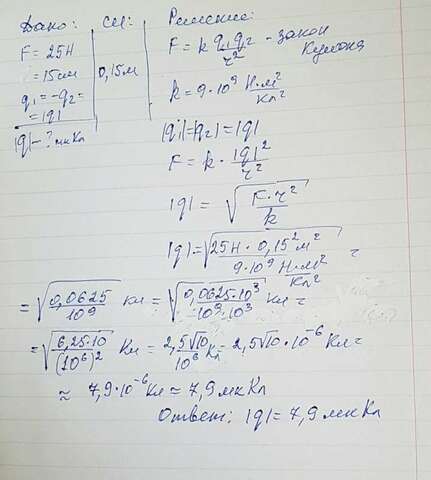 Дано: СИ: Решение:
F = 25Н
r = 15см 0,15м
q₁ = -q₂ =
= |q|
|q| - ? мкКл
F = k q₁q₂/r² - закон Кулона
k = 9·10⁹ Н·м²/Кл²
|q₁| = |-q₂| = |q|
F = k · |q|²/r²
|q| = √(F·r²/k)
|q| = √(25Н · 0,15²м²/(9·10⁹ Н·м²/Кл²)) =
= √(0,0625/10⁹) Кл = √(0,0625·10³/(10⁹·10³)) Кл =
= √(6,25·10/(10⁶)²) Кл = 2,5√10/10⁶ Кл = 2,5√10·10⁻⁶ Кл ≈
≈ 7,9·10⁻⁶ Кл = 7,9 мкКл
Ответ: |q| = 7,9 мкКл